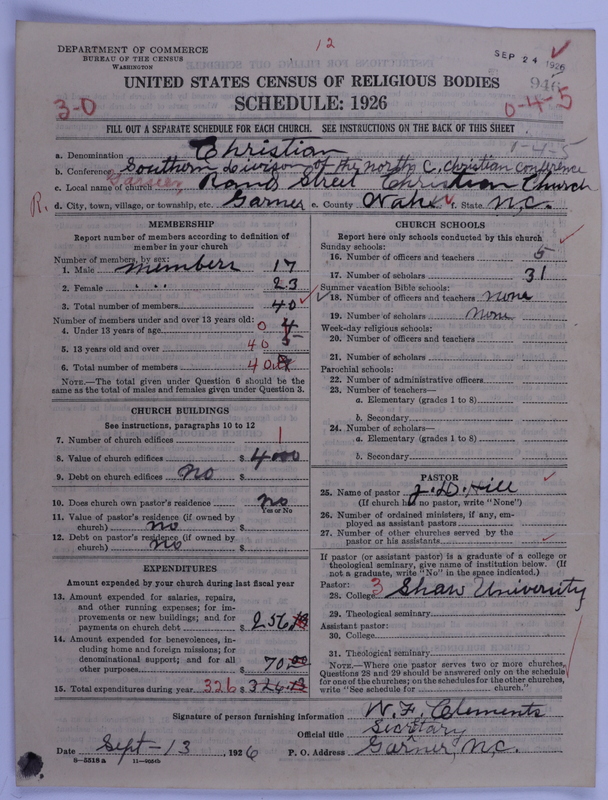 12
DEPARTMENT OF COMMERCE
BUREAU OF THE CENSUS
WASHINGTON
SEP 24 1926
946
UNITED STATES CENSUS OF RELIGIOUS BODIES
SCHEDULE: 1926
3-0
0-4-5
FILL OUT A SEPARATE SCHEDULE FOR EACH CHURCH. SEE INSTRUCTIONS ON THE BACK OF THIS SHEET
1-4-5
a. Denomination Christian
b. Conference Southern Division of the north C, christian conference
c. Local name of church Rand Street Christian Church
R. d. City, town, village, or township, etc. Garner e. County Wake f. State N.C.
MEMBERSHIP
Report number of members according to definition of
member in your church
Number of members, by sex:
1. Male members 17
2. Female " " 23
3. Total number of members 40
Number of members under and over 13 years old:
4. Under 13 years of age 0 4
5. 13 years old and over 40
6. Total number of members 40
NOTE.—The total given under Question 6 should be the
same as the total of males and females given under Question 3.
CHURCH BUILDINGS
See instructions, paragraphs 10 to 12
7. Number of church edifices 1
8. Value of church edifices $ 4000
9. Debt on church edifices no $
10. Does church own pastor's residence no
Yes or No
11. Value of pastor's residence (if owned by
church) no $
12. Debt on pastor's residence (if owned by
church) no $
EXPENDITURES
Amount expended by your church during last fiscal year
13. Amount expended for salaries, repairs,
and other running expenses; for im-
provements or new buildings; and for
payments on church debt $ 256.13
14. Amount expended for benevolences, in-
cluding home and foreign missions; for
denominational support; and for all
other purposes $ 70.00
15. Total expenditures during year 326 $ 326.13
CHURCH SCHOOLS
Report here only schools conducted by this church
Sunday schools:
16. Number of officers and teachers 5
17. Number of scholars 31
Summer vacation Bible schools:
18. Number of officers and teachers none
19. Number of scholars none
Week-day religious schools:
20. Number of officers and teachers
21. Number of scholars
Parochial schools:
22. Number of administrative officers
23. Number of teachers—
a. Elementary (grades 1 to 8)
b. Secondary
24. Number of scholars—
a. Elementary (grades 1 to 8)
b. Secondary
PASTOR
25. Name of pastor J. D. Hill
(If church has no pastor, write "None")
26. Number of ordained ministers, if any, em-
ployed as assistant pastors
27. Number of other churches served by the
pastor or his assistants
If pastor (or assistant pastor) is a graduate of a college or
theological seminary, give name of institution below. (If
not a graduate, write "No" in the space indicated.)
Pastor:
28. College 3 Shaw University
29. Theological seminary
Assistant pastor:
30. College
31. Theological seminary
NOTE.—Where one pastor serves two or more churches,
Questions 28 and 29 should be answered only on the schedule
for one of the churches; on the schedules for the other churches,
write "See schedule for church."
Signature of person furnishing information W. F. Clements
Official title Secretary
Date Sept-13, 1926 P. O. Address Garner, N.C.
8—5518a 11—9054b